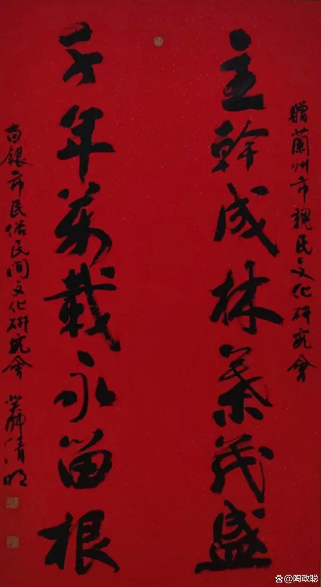 贈蘭州市魏氏文化研究會
主幹成林葉茂盛
千年萬載永留根
白銀市民俗民間文化研究會 清明
@陶政聪